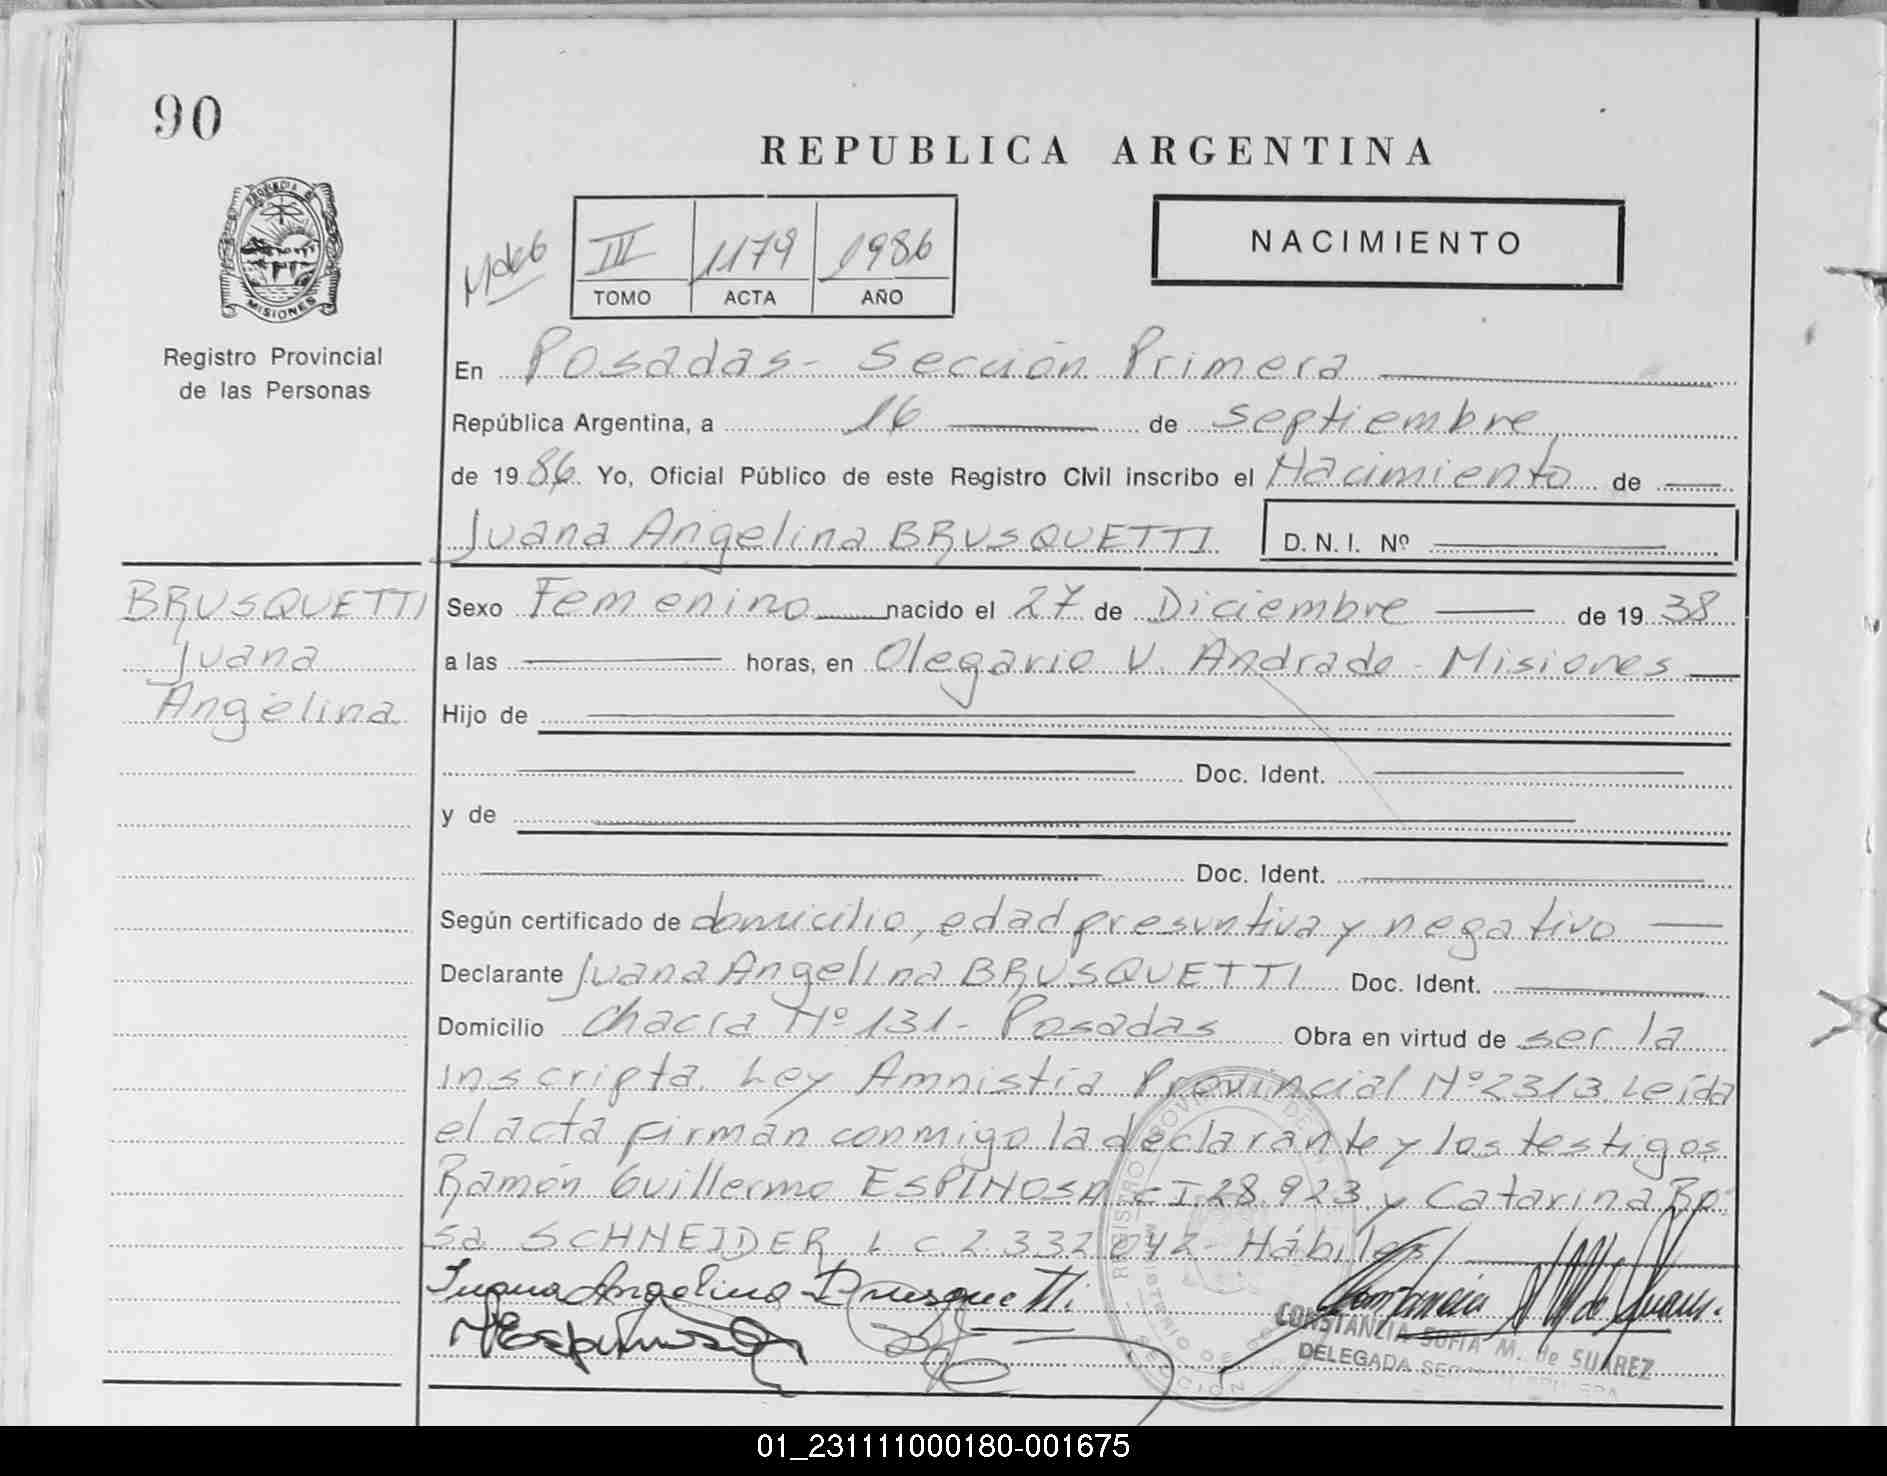 90
REPUBLICA ARGENTINA
NACIMIENTO
III 1179 1986
TOMO ACTA AÑO
MISIONES
Registro Provincial
de las Personas
En Posadas - Sección Primera
República Argentina, a 16 de septiembre
de 1986. Yo, Oficial Público de este Registro Civil inscribo el Nacimiento de
Juana Angelina BRUSQUETTI D.N.I. Nº
BRUSQUETTI
Juana
Angelina
Sexo Femenino nacido el 27 de Diciembre de 1938
a las horas, en Olegario V. Andrade - Misiones
Hijo de
Doc. Ident.
y de
Doc. Ident.
Según certificado de domicilio, edad presuntiva y negativo
Declarante Juana Angelina BRUSQUETTI Doc. Ident.
Domicilio Chacra Nº 131 - Posadas Obra en virtud de ser la
inscripta. Ley Amnistía Provincial Nº 2313. Leída
el acta firman conmigo la declarante y los testigos
Ramón Guillermo ESPINOSA CI 28.923 y Catarina Ro
sa SCHNEIDER L C 2.332.042 - Hábiles/
Juana Angelina Brusquetti
Espinosa
CONSTANCIA SOFIA M. de SUAREZ
DELEGADA
01_231111000180-001675